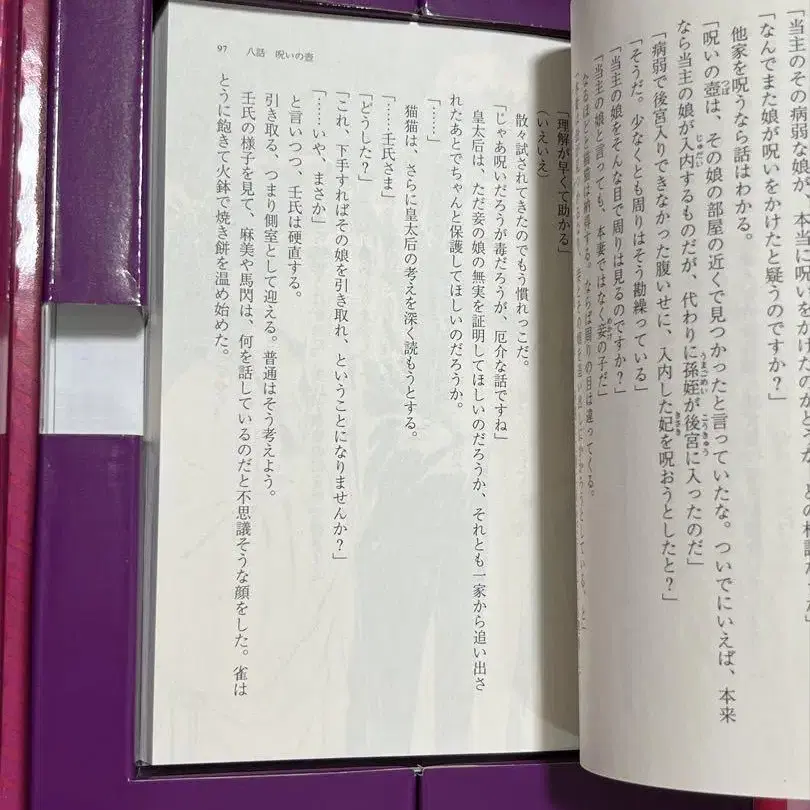 「当主のその病弱な娘が、本当に呪いをかけたのか
「なんでまた娘が呪いをかけたと疑うのですか？」
他家を呪うなら話はわかる。
「呪いの壺は、その娘の部屋の近くで見つかったと言っていたな。ついでにいえば、本来
なら当主の娘が入内するものだが、代わりに孫姪が後宮に入ったのだ」
「病弱で後宮入りできなかった腹いせに、入内した妃を呪おうとしたと？」
「そうだ。少なくとも周りはそう勘繰っている」
「当主の娘をそんな目で周りは見るのですか？」
「当主の娘と言っても、本妻ではなく妾の子だ」
猫猫は納得する。ならば周りの目は違ってくる。
「理解が早くて助かる」
（いえいえ）
散々試されてきたのでもう慣れっこだ。
「じゃあ呪いだろうが毒だろうが、厄介な話ですね」
皇太后は、ただ妾の娘の無実を証明してほしいのだろうか、それとも一家から追い出さ
れたあとでちゃんと保護してほしいのだろうか。
「……」
猫猫は、さらに皇太后の考えを深く読もうとする。
「……壬氏さま」
「どうした？」
「これ、下手すればその娘を引き取れ、ということになりませんか？」
「……いや、まさか」
と言いつつ、壬氏は硬直する。
引き取る、つまり側室として迎える。普通はそう考えよう。
壬氏の様子を見て、麻美や馬閃は、何を話しているのだと不思議そうな顔をした。雀は
とうに飽きて火鉢で焼き餅を温め始めた。
97　八話　呪いの壺